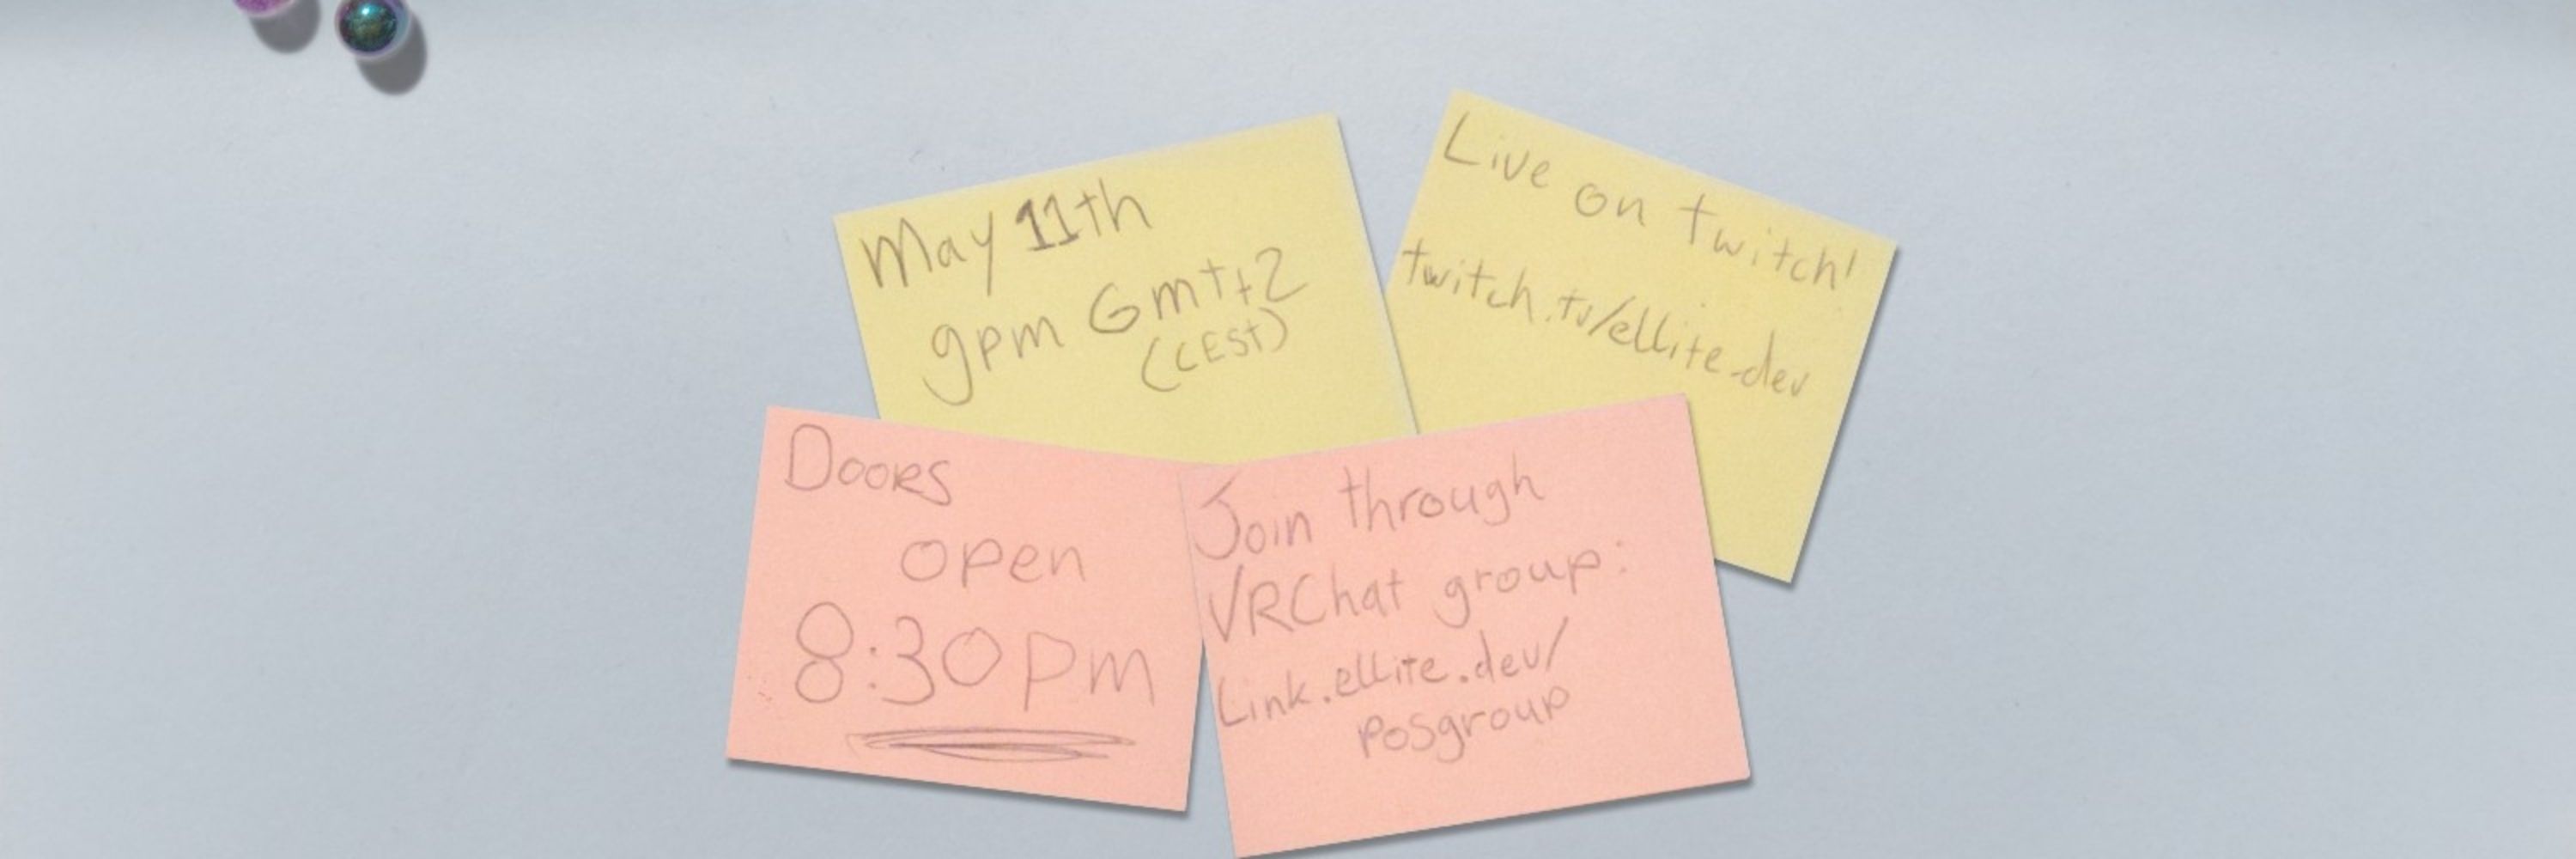 May 11th
9pm Gmt+2
(CEST)
Live on twitch!
twitch.tv/ellite_dev
Doors
open
8:30pm
Join through
VRChat group:
Link.ellite.dev/
posgroup